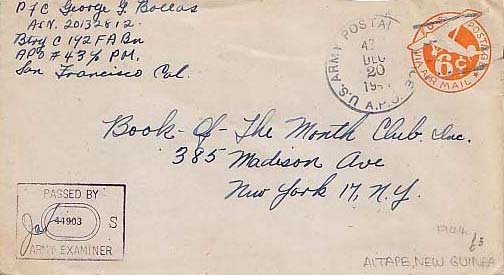 Pfc George G. Bollas
ASN. 20132812.
Btry C 192 FA Bn
APO # 43 % PM.
San Francisco Cal.
U.S. ARMY POSTAL
43
DEC
20
A.P.O.
VIA AIR MAIL
6¢
Book-Of-The Month Club. Inc.
385 Madison Ave
New York 17, N.Y.
PASSED BY
44903 S
ARMY EXAMINER
1944
AITAPE, NEW GUINEA